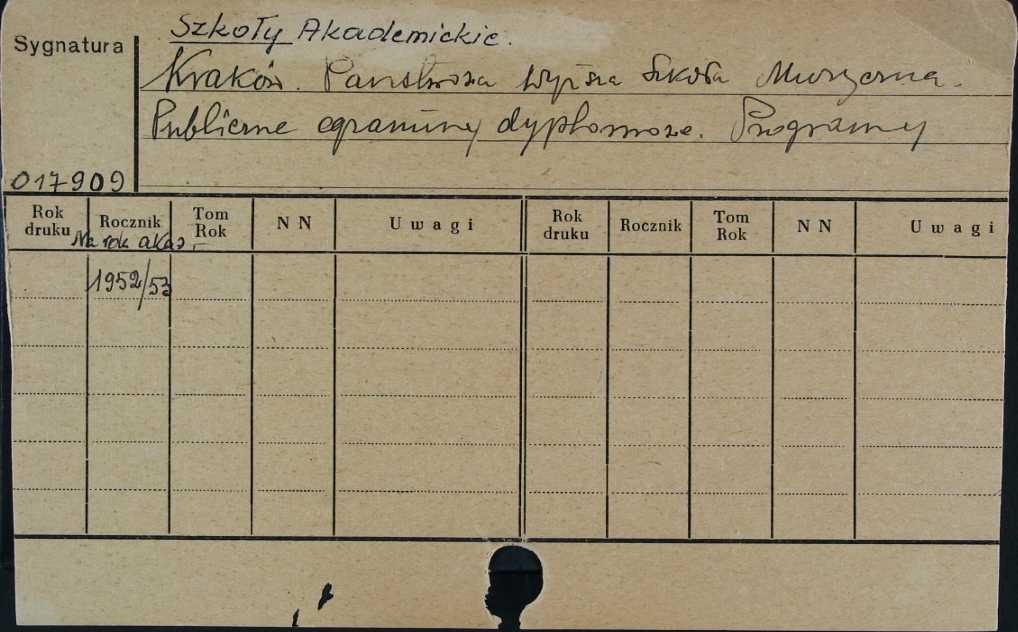 Szkoły Akademickie.
Sygnatura
Kraków. Państwowa Wyższa Szkoła Muzyczna.
Publiczne egzaminy dyplomowe. Programy
017909
Rok druku Rocznik Tom Rok NN Uwagi Rok druku Rocznik Tom Rok NN Uwagi
Na rok akad.
1952/53